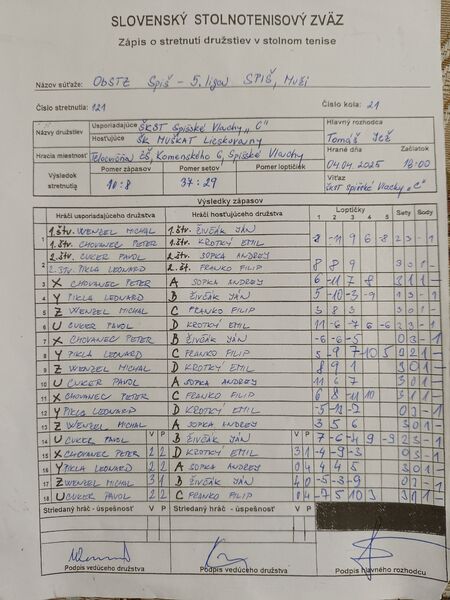 SLOVENSKÝ STOLNOTENISOVÝ ZVÄZ
Zápis o stretnutí družstiev v stolnom tenise
Názov súťaže: ObSTZ Spiš - 5. liga SPIŠ, Muži
Číslo stretnutia: 121 Číslo kola: 21
Názvy družstiev Usporiadajúce ŠKST Spišské Vlachy „C" Hlavný rozhodca
Hosťujúce ŠK MUŠKÁT Lieskovany Tomáš Jež
Hracia miestnosť Telocvičňa ZŠ, Komenského 6, Spišské Vlachy Hrané dňa Začiatok
04.04.2025 18:00
Výsledok stretnutia Pomer zápasov Pomer setov Pomer loptičiek Víťaz
10:8 37:29 ŠKST Spišské Vlachy „C"
Výsledky zápasov
Hráči usporiadajúceho družstva Hráči hosťujúceho družstva Loptičky Sety Body
1 2 3 4 5
1 1.štv. WENZEL MICHAL 1.štv. ŽIVČÁK JÁN
1.štv. CHOVANEC PETER 1.štv. KROTKÝ EMIL 8 -11 9 6 -8 2 3 - 1
2 2.štv. CUKER PAVOL 2.štv. SOPKA ANDREJ
2.štv. PIKLA LEONARD 2.št. FRANKO FILIP 8 8 9 3 0 1 -
3 X CHOVANEC PETER A SOPKA ANDREJ 6 -11 7 8 3 1 1 -
4 Y PIKLA LEONARD B ŽIVČÁK JÁN 5 -10 -3 -9 1 3 - 1
5 Z WENZEL MICHAL C FRANKO FILIP 3 8 3 3 0 1 -
6 U CUKER PAVOL D KROTKÝ EMIL 11 -6 -7 6 -6 2 3 - 1
7 X CHOVANEC PETER B ŽIVČÁK JÁN -6 -6 -5 0 3 - 1
8 Y PIKLA LEONARD C FRANKO FILIP 9 7 -10 5
9 Z WENZEL MICHAL D KROTKÝ EMIL 8 9 1 3 0 1 -
10 U CUKER PAVOL A SOPKA ANDREJ 11 6 7 3 0 1 -
11 X CHOVANEC PETER C FRANKO FILIP 6 8 -11 10 3 1 1 -
12 Y PIKLA LEONARD D KROTKÝ EMIL -5 -12 -2 0 3 - 1
13 Z WENZEL MICHAL A SOPKA ANDREJ 3 5 6 3 0 1 -
14 U CUKER PAVOL V P B ŽIVČÁK JÁN V P 7 -6 -4 9 -9 2 3 - 1
15 X CHOVANEC PETER 2 2 D KROTKÝ EMIL 3 1 -4 -9 -3 0 3 - 1
16 Y PIKLA LEONARD 2 2 A SOPKA ANDREJ 0 4 4 4 5 3 0 1 -
17 Z WENZEL MICHAL 3 1 B ŽIVČÁK JÁN 4 0 -5 -3 -9 0 3 - 1
18 U CUKER PAVOL 2 2 C FRANKO FILIP 0 4 -7 5 10 3 3 1 1 -
Striedaný hráč - úspešnosť V P Striedaný hráč - úspešnosť V P
Podpis vedúceho družstva Podpis vedúceho družstva Podpis hlavného rozhodcu